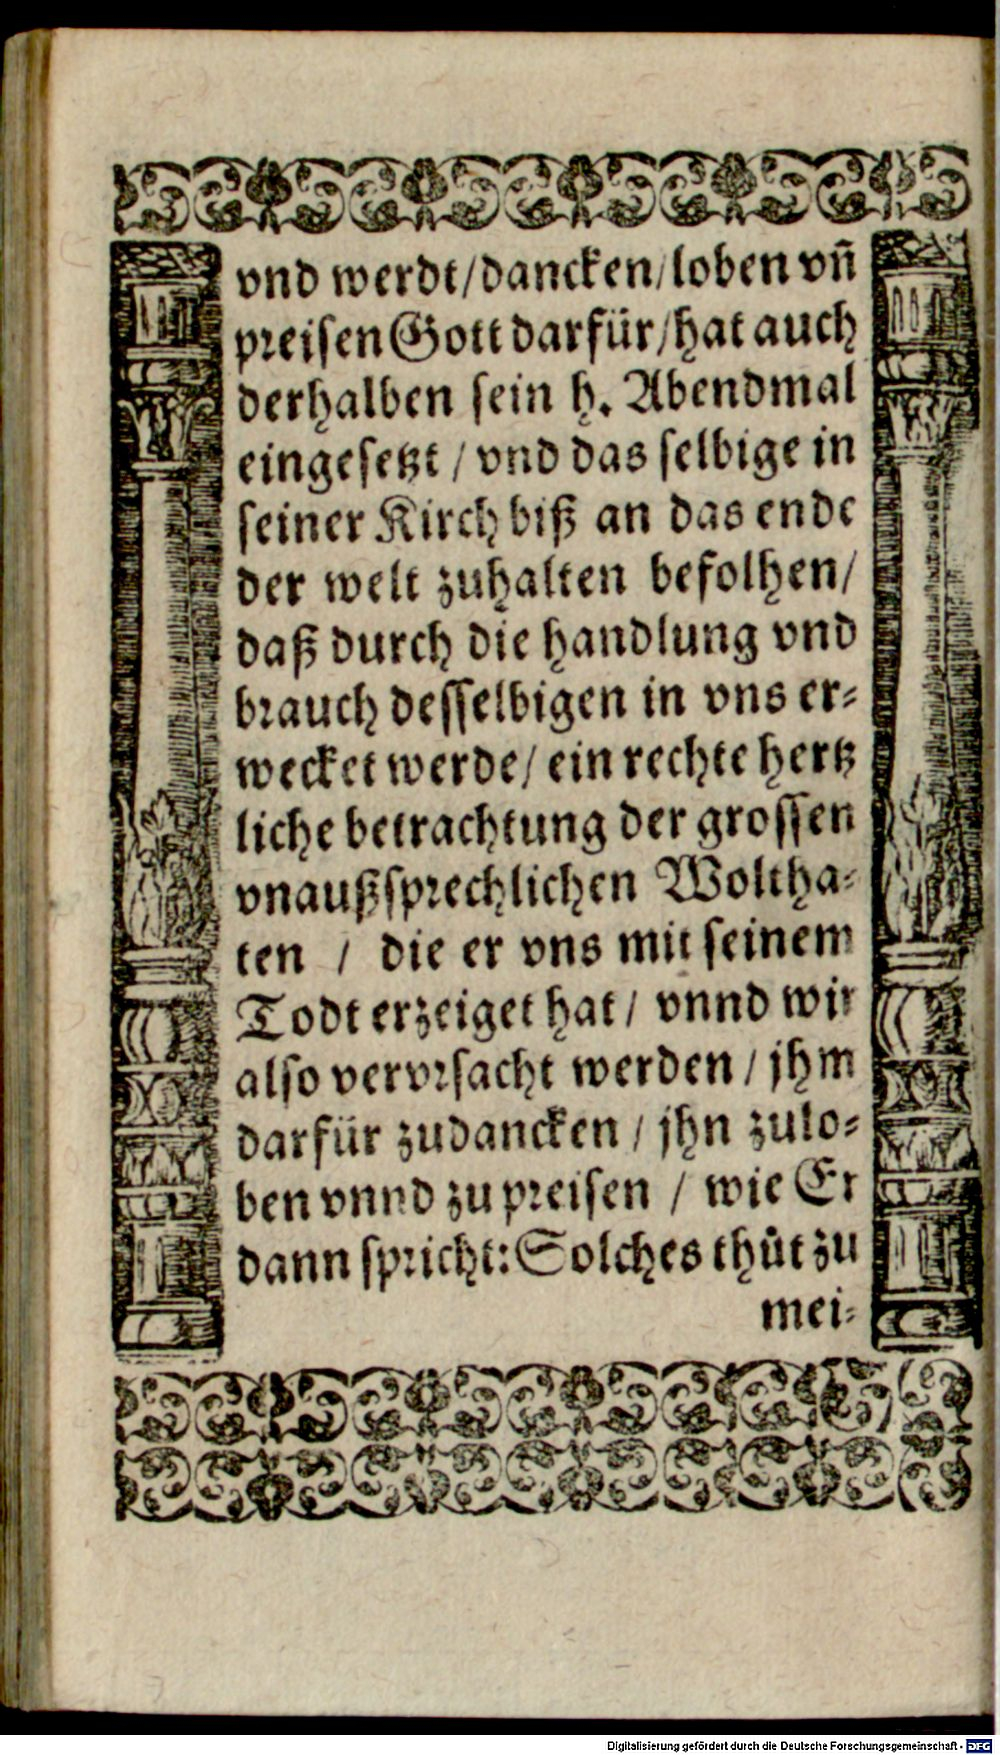 vnd werdt/dancken/loben vn̄
preisen Gott darfür/hat auch
derhalben sein h. Abendmal
eingesetzt / vnd das selbige in
seiner Kirch biß an das ende
der welt zuhalten befolhen/
daß durch die handlung vnd
brauch desselbigen in vns er-
wecket werde/ ein rechte hertz
liche betrachtung der grossen
vnaußsprechlichen Woltha-
ten / die er vns mit seinem
Todt erzeiget hat/ vnnd wir
also vervrsacht werden / jhm
darfür zudancken / jhn zulo-
ben vnnd zu preisen / wie Er
dann spricht: Solches thůt zu
mei-
Digitalisierung gefördert durch die Deutsche Forschungsgemeinschaft - DFG